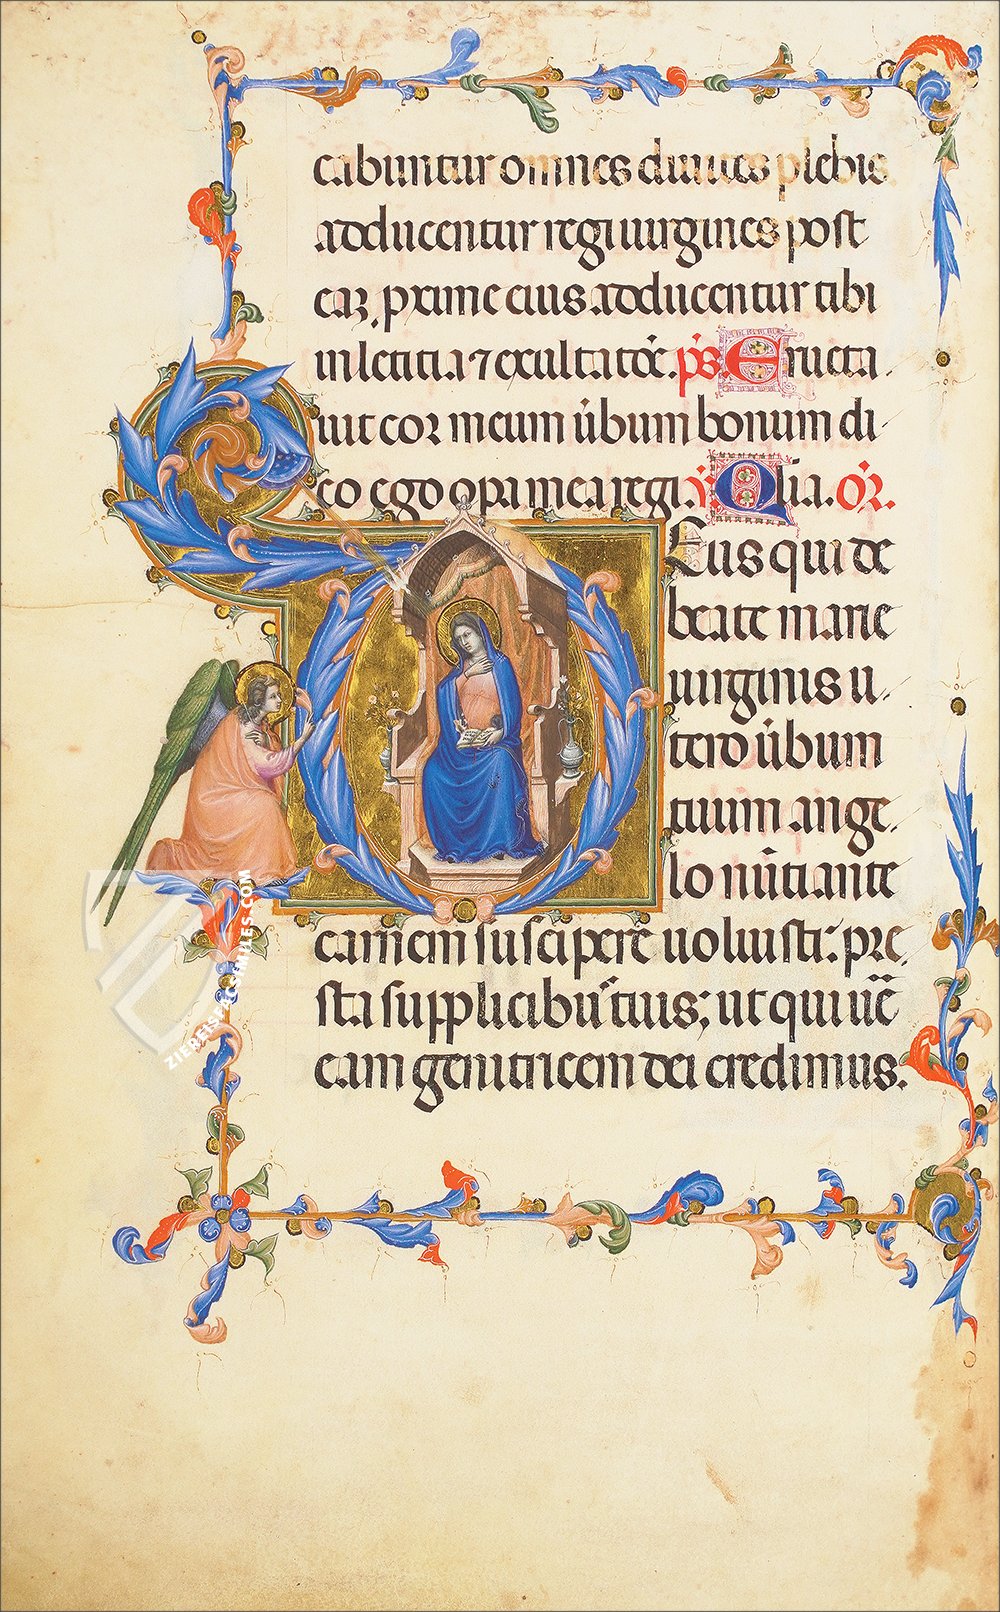 cabuntur omnes diuites plebis
adducentur regi uirgines post
eaꝝ. pxime eius adducentur tibi
in leticia ⁊ exultatōe. p̄s. Eructa
uit cor meum ūbum bonum di
co ego opa mea regi. ꝟ. Alia. oꝝ.
Deus qui de
beate marie
uirginis u
tero ūbum
tuum ange
lo nūtiante
carnem suscipere uoluisti: pre
sta supplicibꝰ tuis; ut qui uē
eam genitricem dei credimus.
ZIEREISFACSIMILES.COM